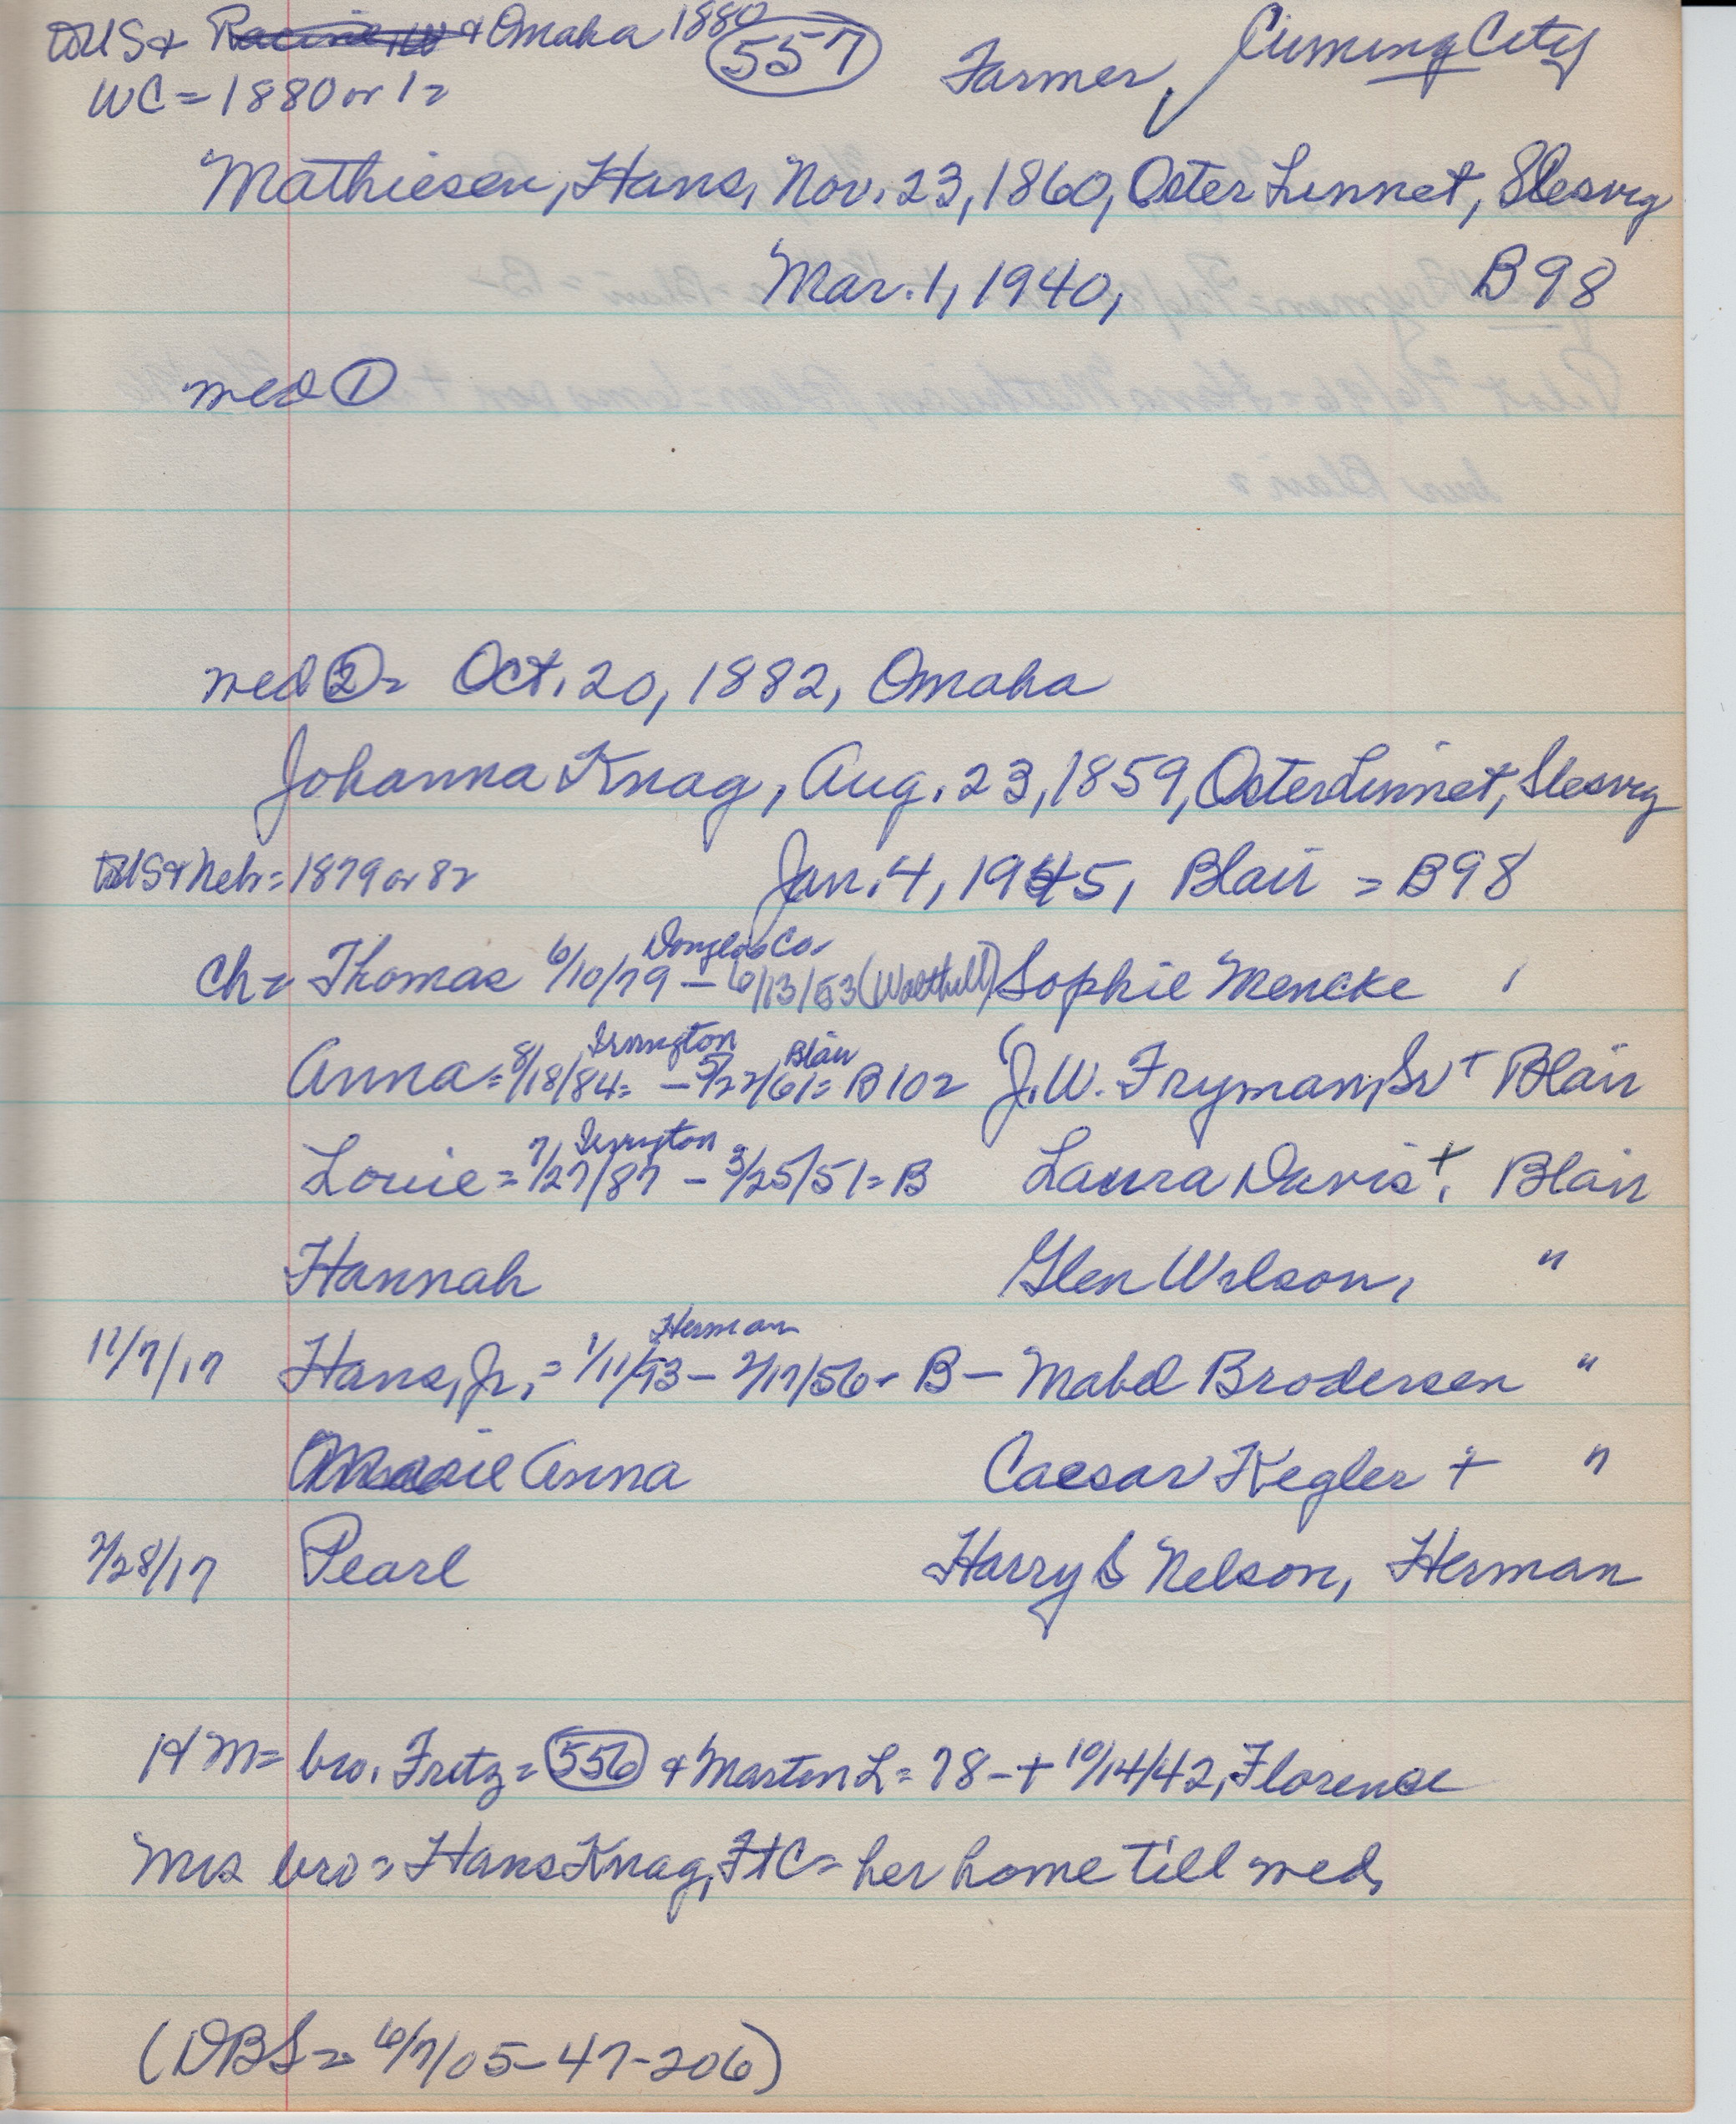 to US & Racine, W & Omaha 1880
557
Farmer, Cuming City
WC = 1880 or 1=
Mathiesen, Hans, Nov. 23, 1860, Oster Linnet, Slesvig
Mar. 1, 1940, B98
wed ①
wed ② = Oct. 20, 1882, Omaha
Johanna Knag, Aug. 23, 1859, Oster Linnet, Slesvig
to US & Nebr = 1879 or 82 Jan. 4, 1945, Blair = B98
Douglas Co.
ch = Thomas 6/10/79 - 6/13/53 (Walthill) Sophie Mencke
Irvington Blair
Anna = 8/18/84 = - 5/22/61 = B102 J.W. Fryman, Sr + Blair
Irvington
Louie = 7/27/87 - 3/25/51 = B Laura Davis +, Blair
Hannah Glen Wilson, "
Herman
11/7/17 Hans, Jr. = 1/11/93 - 2/17/56 - B - Mabel Brodersen "
Anna Caesar Kegler + "
2/28/17 Pearl Harry S Nelson, Herman
HM = bro. Fritz = 556 & Marten L = 78 - + 10/14/42, Florence
Mrs bro = Hans Knag, FtC = her home till wed,
(DBS = 6/7/05 - 47 - 206)